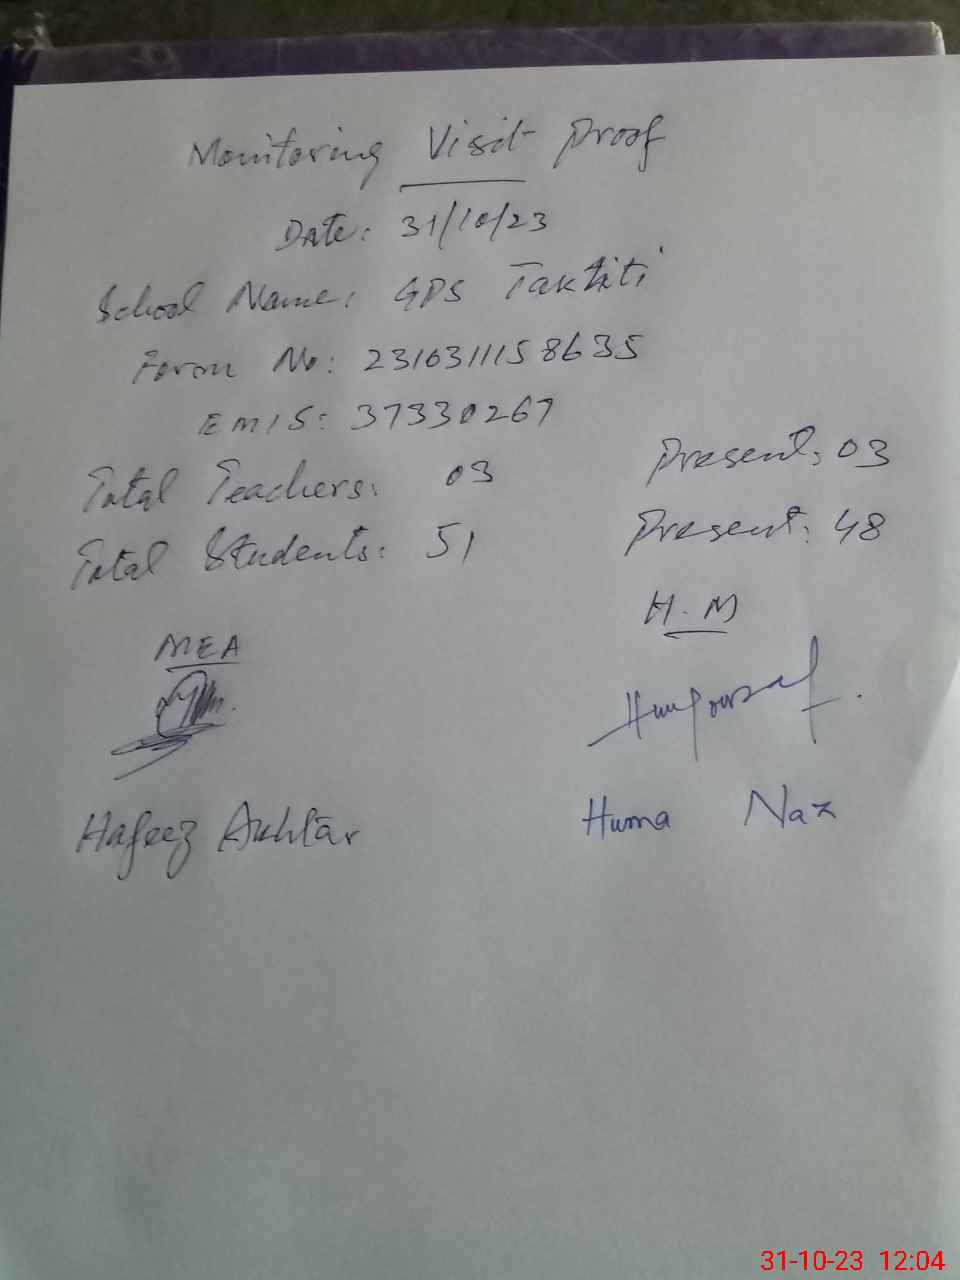 Monitoring Visit Proof
Date: 31/10/23
School Name: GPS Taktiti
Form No: 231031115 8635
EMIS: 37330267
Total Teachers: 03 Present: 03
Total Students: 51 Present: 48
MEA H.M
Hafeez Akhtar Huma Naz
31-10-23 12:04